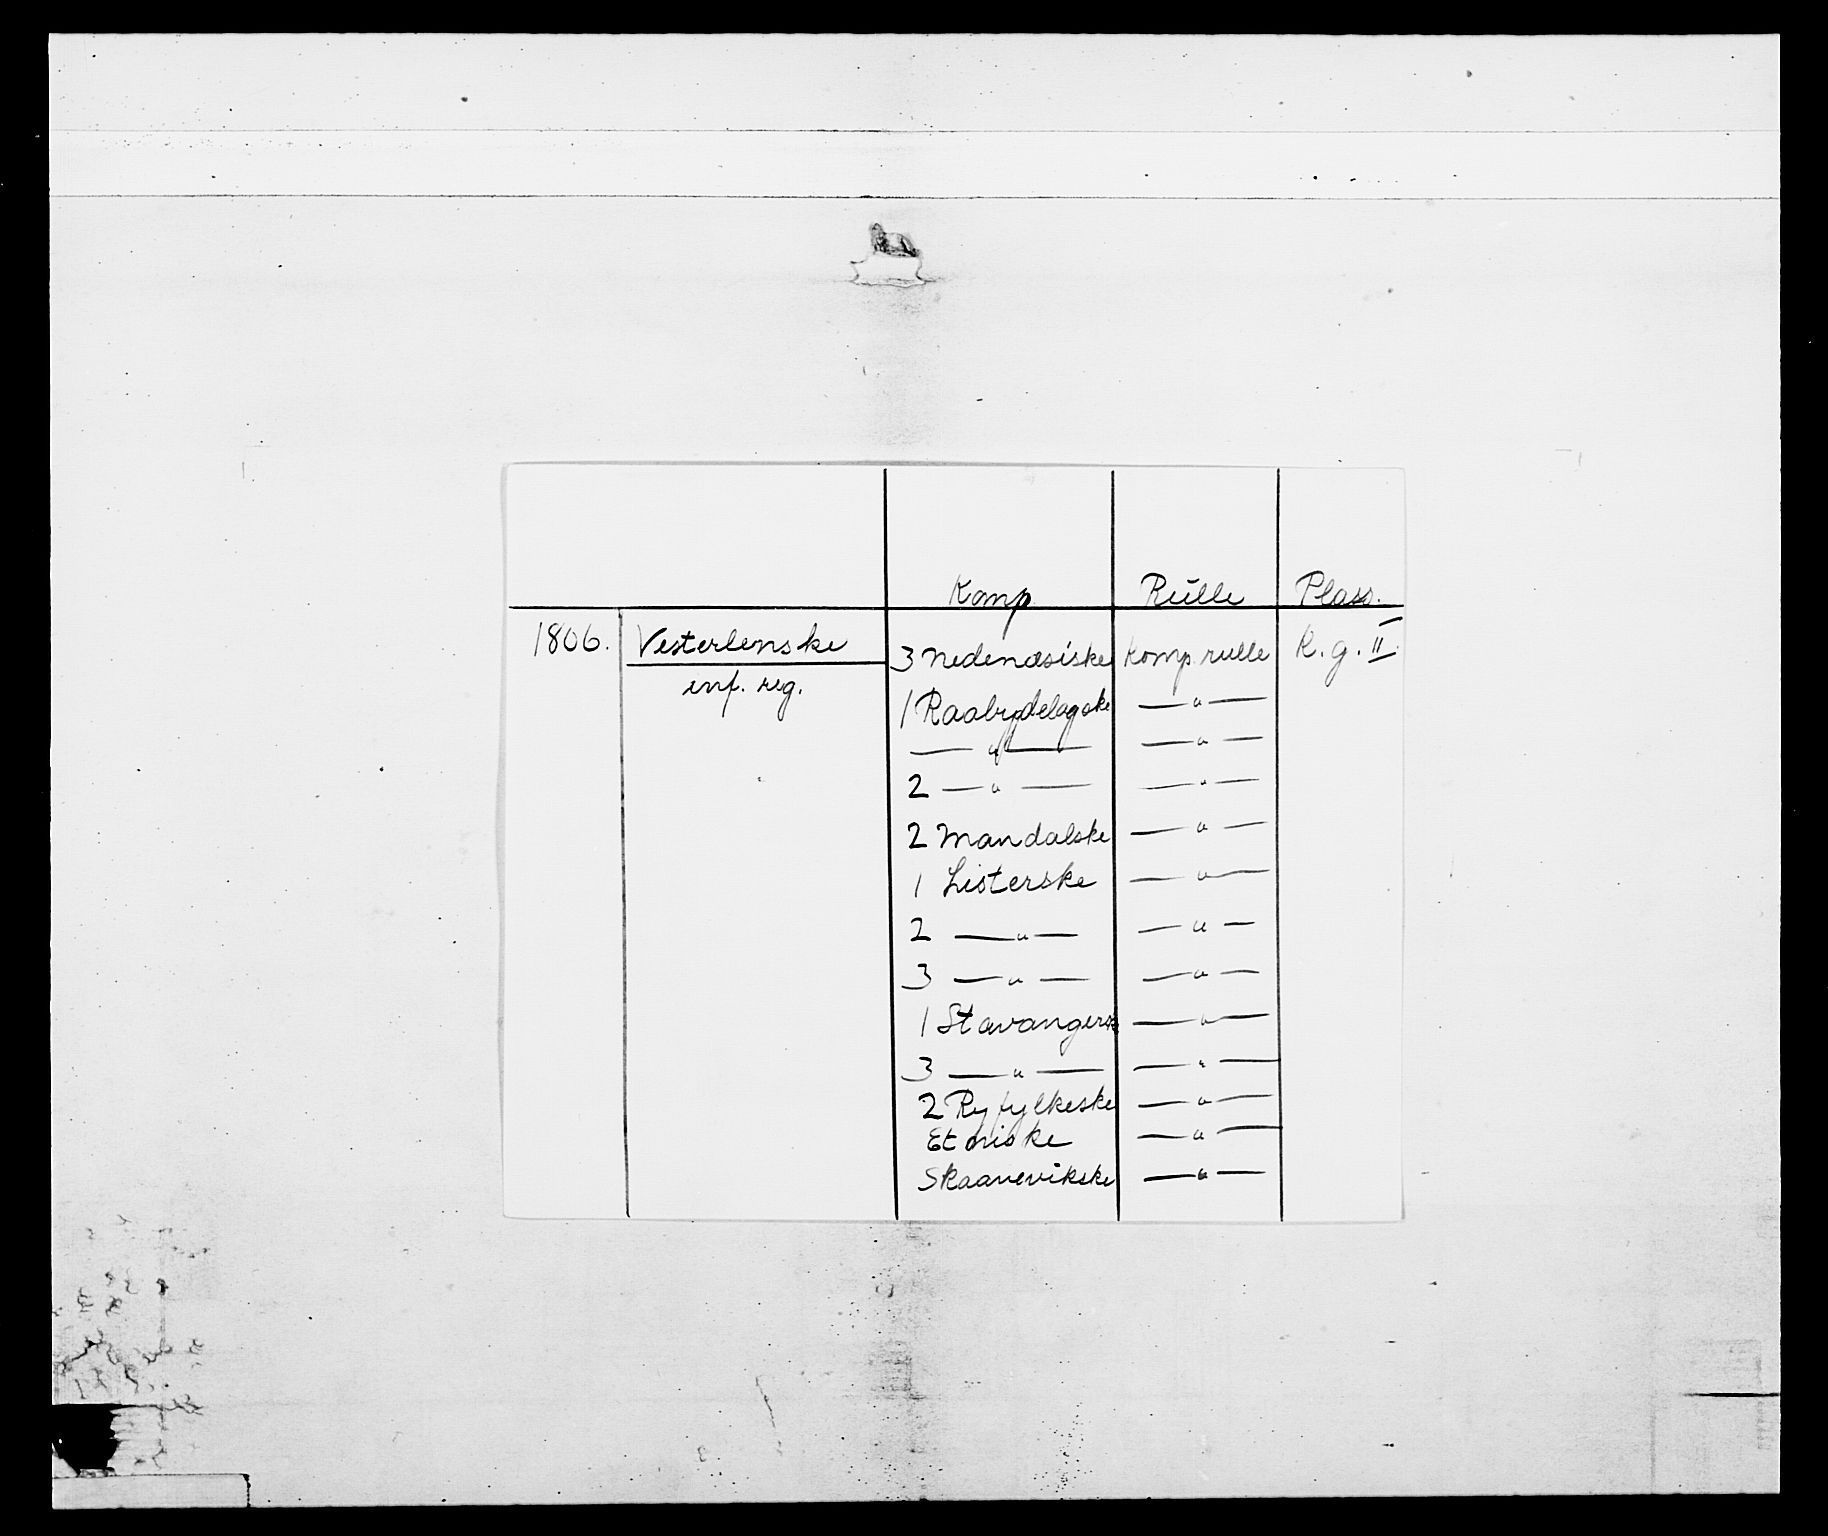 Komp Rulle Plass.
1806. Vesterlenske 3 Nedenæsiske Komp. rulle R.g. II
inf. reg. 1 Raabydelagske — " —
— " — — " —
2 — " — — " —
2 Mandalske — " —
1 Listerske — " —
2 — " — — " —
3 — " — — " —
1 Stavangersk — " —
3 — " — — " —
2 Ryfylkeske — " —
Etniske — " —
Skaanevikske — " —